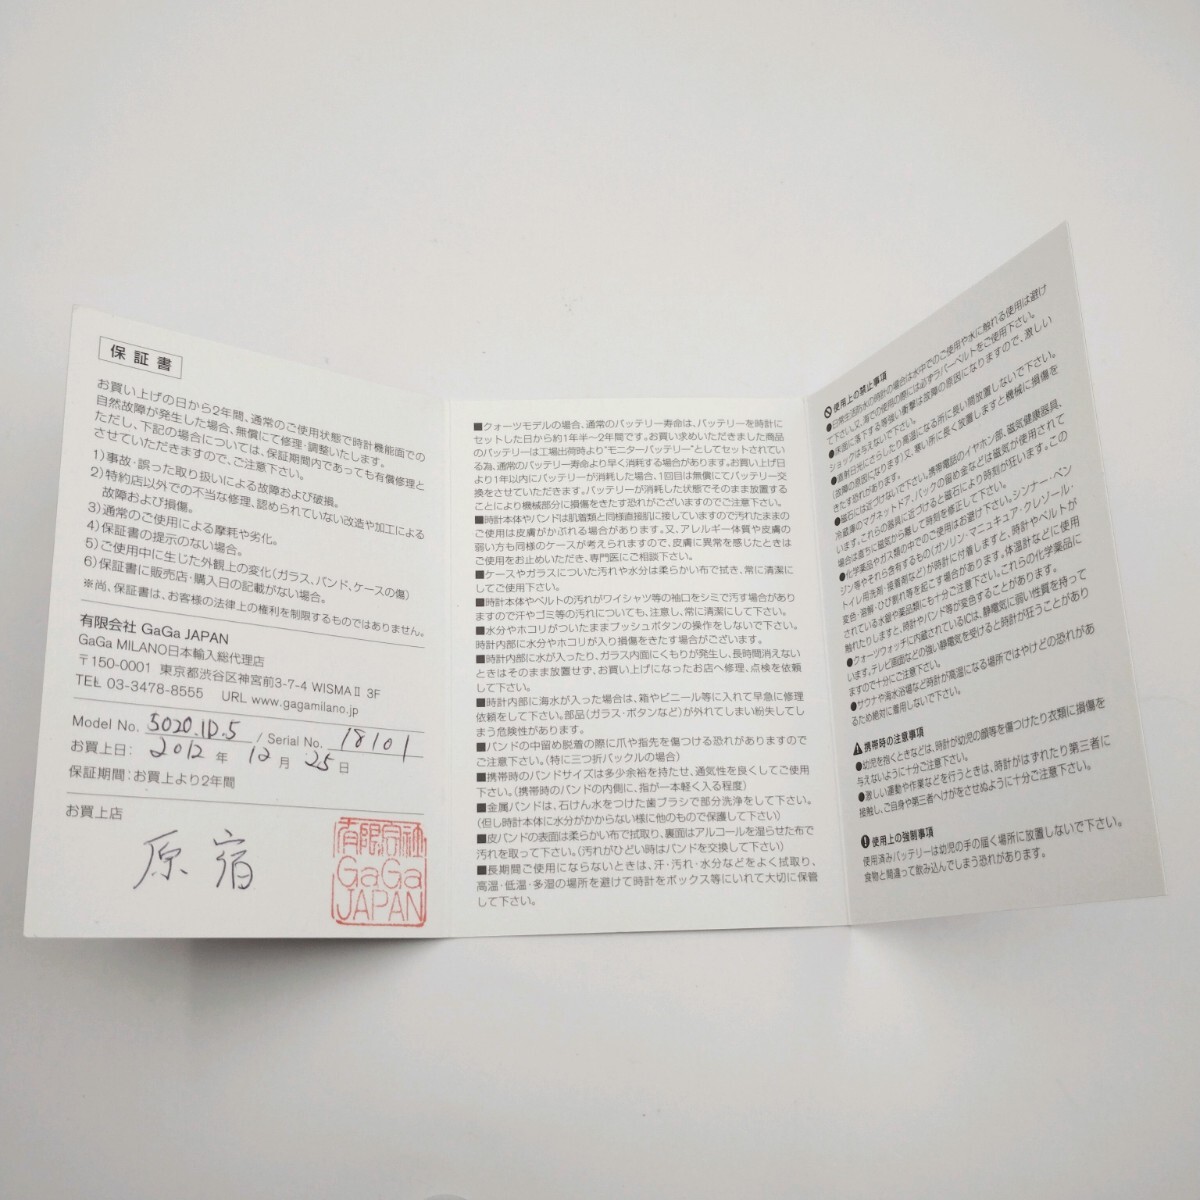 保証書
お買い上げの日から2年間、通常のご使用状態で時計機能面での
自然故障が発生した場合、無償にて修理・調整いたします。
ただし、下記の場合については、保証期間内であっても有償修理と
させていただきますので、ご注意下さい。
1)事故・誤った取り扱いによる故障および破損。
2)特約店以外での不当な修理、認められていない改造や加工による
故障および損傷。
3)通常のご使用による摩耗や劣化。
4)保証書の提示のない場合。
5)ご使用中に生じた外観上の変化(ガラス、バンド、ケースの傷)
6)保証書に販売店・購入日の記載がない場合。
※尚、保証書は、お客様の法律上の権利を制限するものではありません。
有限会社 GaGa JAPAN
GaGa MILANO日本輸入総代理店
〒150-0001 東京都渋谷区神宮前3-7-4 WISMAⅡ 3F
TEL 03-3478-8555 URL www.gagamilano.jp
Model No. 5020.1D.5 / Serial No. 18101
お買上日: 2012 年 12 月 25 日
保証期間:お買上より2年間
お買上店
原宿
有限会社
GaGa
JAPAN
■クォーツモデルの場合、通常のバッテリー寿命は、バッテリーを時計に
セットした日から約1年半〜2年間です。お買い求めいただきました商品
のバッテリーは工場出荷時より"モニターバッテリー"としてセットされてい
る為、通常のバッテリー寿命より早く消耗する場合があります。お買い上げ日
より1年以内にバッテリーが消耗した場合、1回目は無償にてバッテリー交
換をさせていただきます。バッテリーが消耗した状態でそのまま放置する
ことにより機械部分に損傷をきたす恐れがございますのでご注意下さい。
■時計本体やバンドは肌着類と同様直接肌に接していますので汚れたままの
ご使用は皮膚がかぶれる場合があります。又、アレルギー体質や皮膚の
弱い方も同様のケースが考えられますので、皮膚に異常を感じたときは
ご使用をお止めいただき、専門医にご相談下さい。
■ケースやガラスについた汚れや水分は柔らかい布で拭き、常に清潔に
してご使用下さい。
■時計本体やベルトの汚れがワイシャツ等の袖口をシミで汚す場合があり
ますので汗やゴミ等の汚れについても、注意し、常に清潔にして下さい。
■水分やホコリがついたままプッシュボタンの操作をしないで下さい。
時計内部に水分やホコリが入り損傷をきたす場合がございます。
■時計内部に水が入ったり、ガラス内面にくもりが発生し、長時間消えない
ときはそのまま放置せず、お買い上げになったお店へ修理、点検を依頼
して下さい。
■時計内部に海水が入った場合は、箱やビニール等に入れて早急に修理
依頼をして下さい。部品(ガラス・ボタンなど)が外れてしまい紛失してし
まう危険性があります。
■バンドの中留め脱着の際に爪や指先を傷つける恐れがありますので
ご注意下さい。(特に三つ折バックルの場合)
■携帯時のバンドサイズは多少余裕を持たせ、通気性を良くしてご使用
下さい。(携帯時のバンドの内側に、指が一本軽く入る程度)
■金属バンドは、石けん水をつけた歯ブラシで部分洗浄をして下さい。
(但し時計本体に水分がかからない様に他のもので保護して下さい)
■皮バンドの表面は柔らかい布で拭取り、裏面はアルコールを湿らせた布で
汚れを取って下さい。(汚れがひどい時はバンドを交換して下さい)
■長期間ご使用にならないときは、汗・汚れ・水分などをよく拭取り、
高温・低温・多湿の場所を避けて時計をボックス等にいれて大切に保管
して下さい。
使用上の禁止事項
●日常生活防水の時計の場合は水中でのご使用や水に触れる使用は避け
て下さい。又、海での使用の際には必ずラバーベルトをご使用下さい。
●床面に落下する等強い衝撃は故障の原因になりますので、激しい
ショックは与えないで下さい。
●直射日光にさらしたり高温になる所に長い間放置しないで下さい。
(故障の原因になります)又、寒い所に長く放置しますと機械に損傷を
きたす恐れがあります。
●磁石には近づけないで下さい。携帯電話のイヤホン部、磁気健康器具、
冷蔵庫のマグネットドア、バックの留め金などは磁気が使用されて
います。これらの器具に近づけると磁石により時刻が狂います。この
場合は直ちに磁気から離して時刻を修正して下さい。
●化学薬品やガス類の中でのご使用はお避け下さい。シンナー・ベン
ジン等やそれら含有するもの(ガソリン・マニュキュア・クレゾール・
トイレ用洗剤・接着剤など)が時計に付着しますと、時計やベルトが
変色・溶解・ひび割れ等を起こす場合があります。体温計などに使用
されている水銀や薬品類にも十分ご注意下さい。これらの化学薬品に
触れたりしますと、時計やバンド等が変色することがあります。
●クォーツウォッチに内蔵されているICは、静電気に弱い性質を持って
います。テレビ画面などの強い静電気を受けると時計が狂うことがあり
ますので十分にご注意下さい。
●サウナや海水浴場など時計が高温になる場所ではやけどの恐れがあ
るため絶対に着用しないで下さい。
携帯時の注意事項
●幼児を抱くときなどは、時計が幼児の顔等を傷つけたり衣類に損傷を
与えないように十分ご注意下さい。
●激しい運動や作業などを行うときは、時計がはずれたり第三者に
接触し、ご自身や第三者へけがをさせぬように十分ご注意下さい。
使用上の強制事項
使用済みバッテリーは幼児の手の届く場所に放置しないで下さい。
食物と間違って飲み込んでしまう恐れがあります。